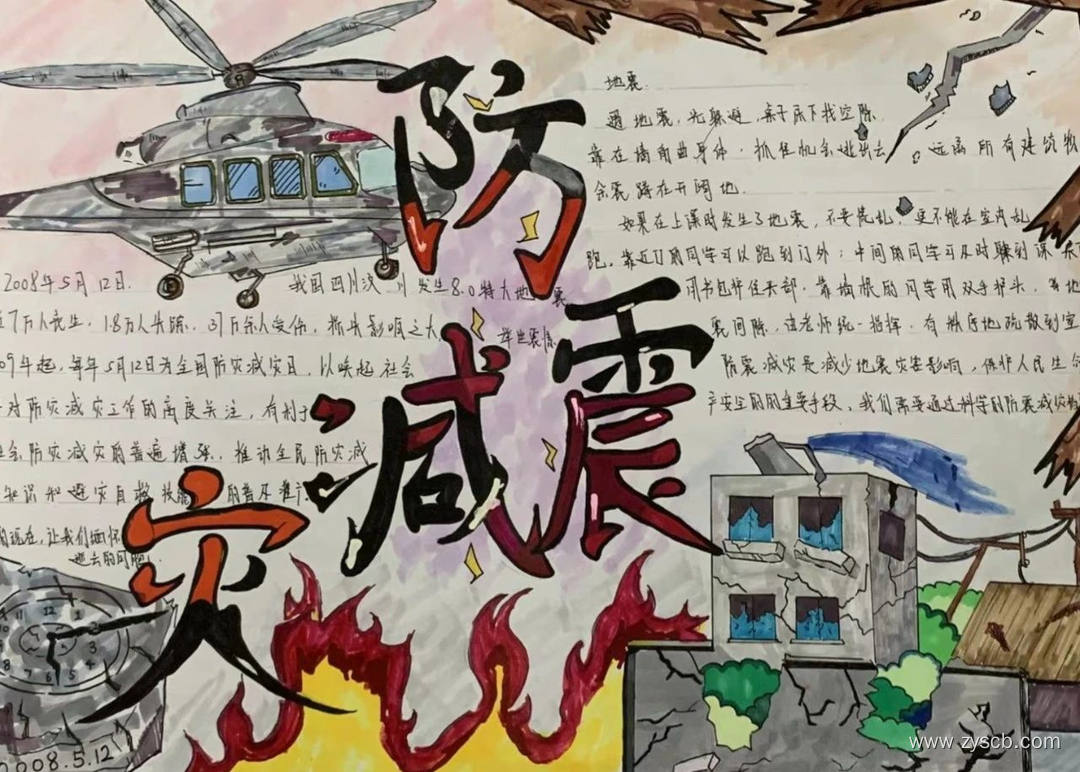 防震减灾
地震
遇地震，先躲避，桌子床下找空隙，
靠在墙角曲身体．抓住机会逃出去．远离所有建筑物
余震蹲在开阔地．
如果在上课时发生了地震，不要慌乱，更不能在室内乱
跑．靠近门的同学可以跑到门外；中间的同学可及时躲到课桌
用书包护住头部．靠墙根的同学用双手护头．
震间隙，由老师统一指挥．有秩序地疏散到室
防震减灾是减少地震灾害影响，保护人民生命
产安全的的重要手段，我们需要通过科学的防震减灾
2008年5月12日．我国四川汶 发生8.0特大地震
7万人死亡，1.8万人失踪．37万余人受伤，损失影响之大
09年起，每年5月12日为全国防灾减灾日，以唤起社会
对防灾减灾工作的高度关注，有利于
会防灾减灾的普遍增强．推动全民防灾减
知识和避灾自救技能的普及推
现在，让我们缅怀
逝去的同胞．
11 12 1
10
3
8 4
7 6 5
2008.5.12
www.zyscb.com